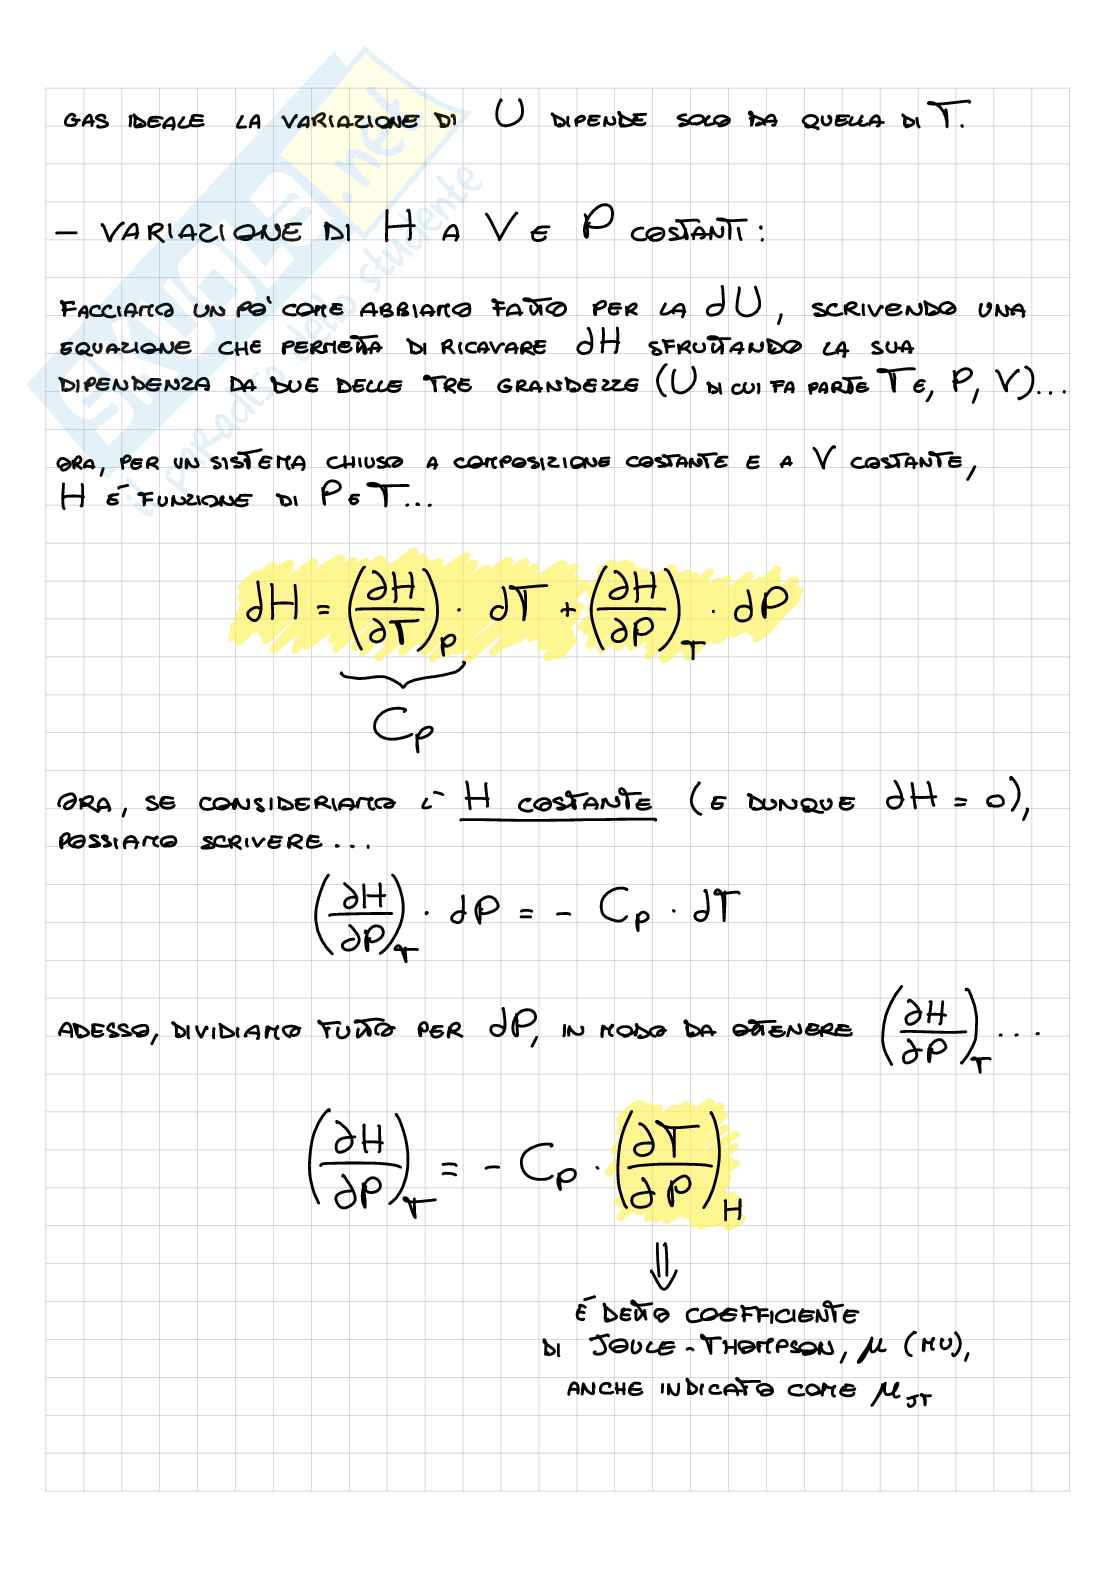 GAS IDEALE LA VARIAZIONE DI U DIPENDE SOLO DA QUELLA DI T.
– VARIAZIONE DI H A V E P COSTANTI:
FACCIAMO UN PO' COME ABBIAMO FATTO PER LA dU, SCRIVENDO UNA
EQUAZIONE CHE PERMETTA DI RICAVARE dH SFRUTTANDO LA SUA
DIPENDENZA DA DUE DELLE TRE GRANDEZZE (U DI CUI FA PARTE T E, P, V)...
ORA, PER UN SISTEMA CHIUSO A COMPOSIZIONE COSTANTE E A V COSTANTE,
H É FUNZIONE DI P E T...
dH = (∂H/∂T)_P · dT + (∂H/∂P)_T · dP
C_P
ORA, SE CONSIDERIAMO L' H COSTANTE (E DUNQUE dH = 0),
POSSIAMO SCRIVERE...
(∂H/∂P)_T · dP = - C_P · dT
ADESSO, DIVIDIAMO TUTTO PER dP, IN MODO DA OTTENERE (∂H/∂P)_T ...
(∂H/∂P)_T = - C_P · (∂T/∂P)_H
⇓
É DETTO COEFFICIENTE
DI JOULE-THOMPSON, μ (MU),
ANCHE INDICATO COME μ_JT
SKUOLA.net
il paradiso dello studente